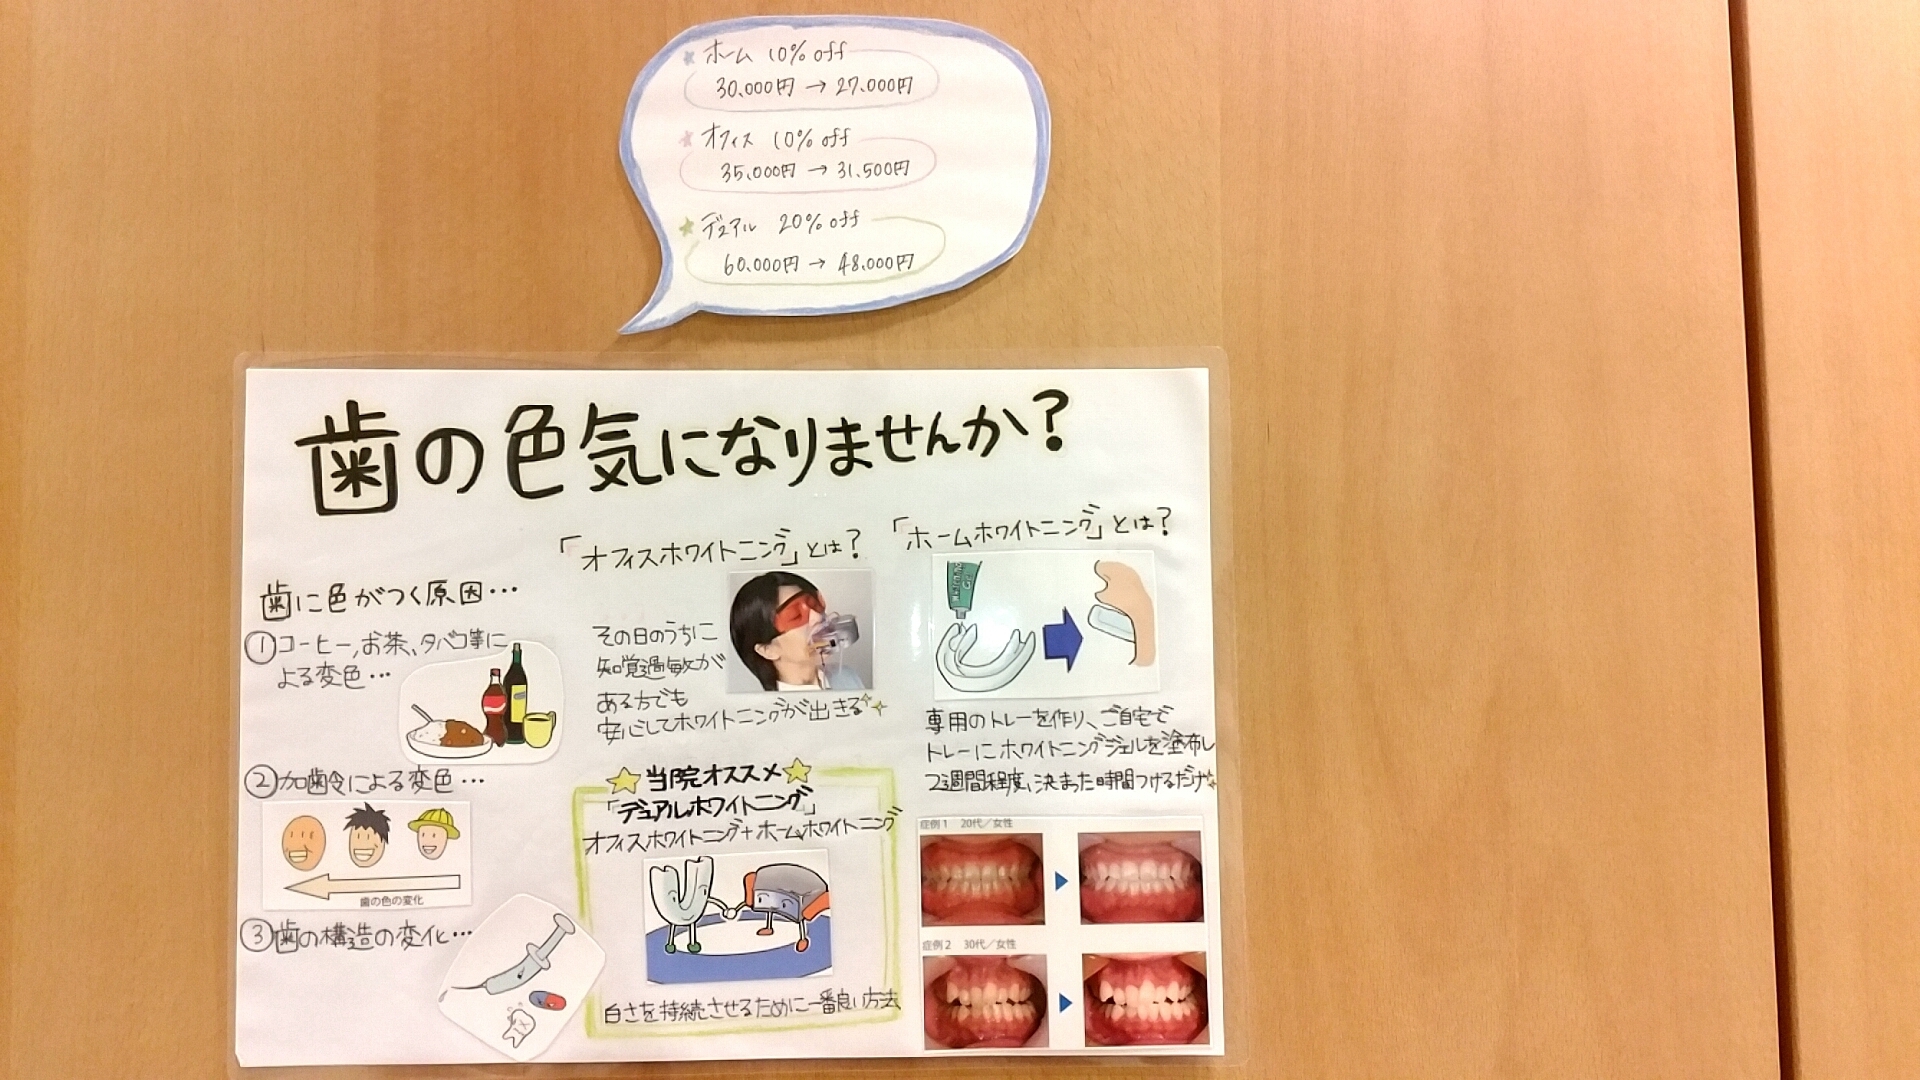 ★ホーム 10% off
30,000円→27,000円
★オフィス 10% off
35,000円→31,500円
★デュアル 20% off
60,000円→48,000円
歯の色気になりませんか?
歯に色がつく原因…
①コーヒー,お茶、タバコ等に
よる変色…
②加歯令による変色…
歯の色の変化
③歯の構造の変化…
「オフィスホワイトニング」とは?
その日のうちに
知覚過敏が
ある方でも
安心してホワイトニングが出きる
★当院オススメ★
「デュアルホワイトニング」
オフィスホワイトニング+ホームホワイトニング
白さを持続させるために一番良い方法
「ホームホワイトニング」とは?
専用のトレーを作り、ご自宅で
トレーにホワイトニングジェルを塗布し
2週間程度、決まった時間つけるだけ
症例1 20代/女性
症例2 30代/女性